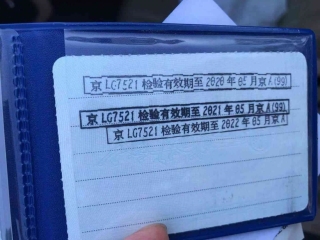 京 LG7521 检验有效期至 2020 年 05 月京 A(99)
京 LG7521 检验有效期至 2021 年 05 月京 A(99)
京 LG7521 检验有效期至 2022 年 05 月京 A